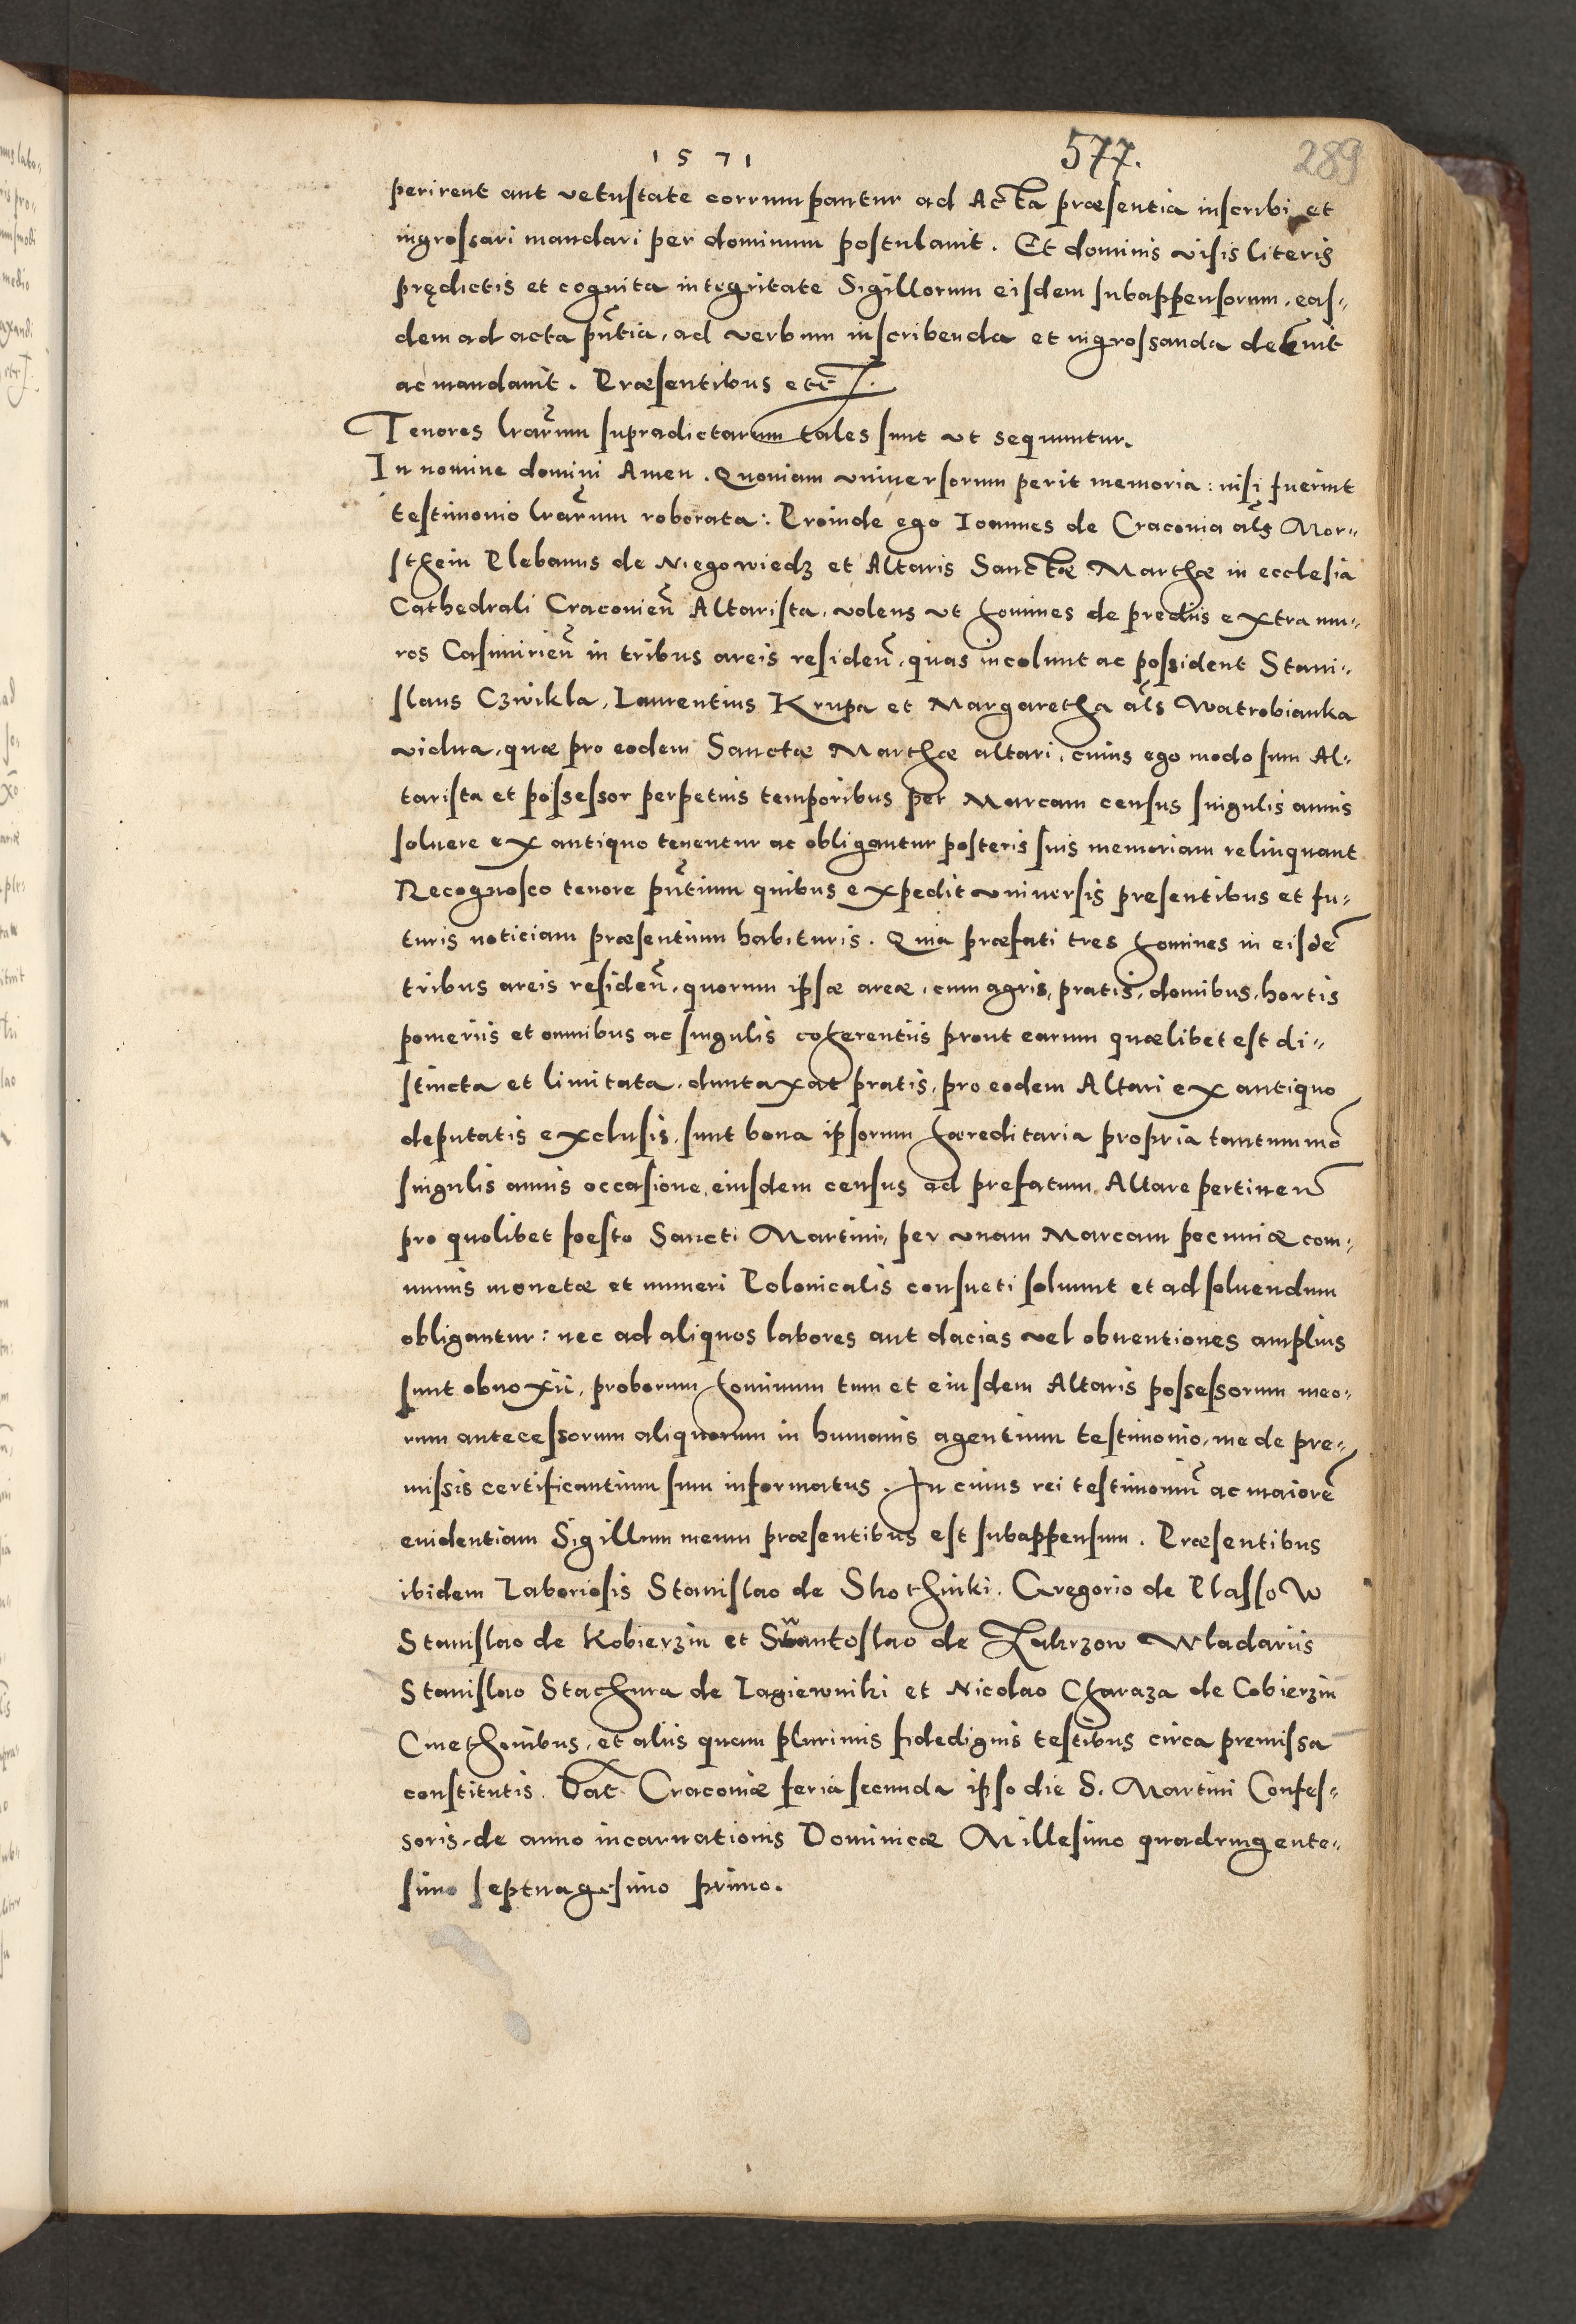 1571 577. 289
perirent aut vetustate corrumpantur ad Acta præsentia inscribi et
ingrossari mandari per dominum postulauit. Et dominus visis literis
prędictis et cognita integritate Sigillorum eisdem subappensorum, eas-
dem ad acta pñtia, ad verbum inscribenda et ingrossanda decreuit
ac mandauit. Præsentibus etc
Tenores lrarum supradictarum tales sunt ut sequuntur.
In nomine domini Amen. Quoniam vniuersorum perit memoria: nisi fuerint
testimonio lrarum roborata: Proinde ego Ioannes de Craconia als Mor-
sthein Plebanus de Niegowiedz et Altaris Sanctæ Marthæ in ecclesia
Cathedrali Craconieñ Altarista, volens ut homines de prediis extra mu-
ros Casimirieñ in tribus areis resideñ, quas incolunt ac possident Stani-
slaus Czwikla, Laurentius Krupa et Margaretha als Watrobianka
vidua, quæ pro eodem Sanctæ Marthæ altari, cuius ego modo sum Al-
tarista et possessor perpetuis temporibus per Marcam census singulis annis
soluere ex antiquo tenentur ac obligantur posteris suis memoriam relinquant
Recognosco tenore pñtium quibus expedit vniuersis presentibus et fu-
turis noticiam præsentium habituris. Quia præfati tres homines in eisdē
tribus areis resideñ, quorum ipsæ areæ, cum agris, pratis, domibus, hortis
pomeriis et omnibus ac singulis coherentiis prout earum quælibet est di-
stincta et limitata, duntaxat pratis, pro eodem Altari ex antiquo
deputatis exclusis, sunt bona ipsorum hæreditaria propria tantummō
singulis annis occasione, eiusdem census ad prefatum Altare pertineñ
pro quolibet foesto Sancti Martini, per vnam Marcam pecuniæ com-
munis monetæ et numeri Polonicalis consueti soluunt et ad soluendum
obligantur: nec ad aliquos labores aut dacias vel obuentiones amplius
sunt obnoxii, proborum hominum tum et eiusdem Altaris possessorum meo-
rum antecessorum aliquorum in humanis agentium testimonio, me de pre-
missis certificantium sum informatus. In cuius rei testimoniū ac maiorē
euidentiam Sigillum meum præsentibus est subappensum. Præsentibus
ibidem Laboriosis Stanislao de Skothniki, Gregorio de Plassow
Stanislao de Kobierzin et Swantoslao de Zakrzow Wladariis
Stanislao Stachura de Lagiewniki et Nicolao Charaza de Cobierzin
Cmethonibus, et aliis quam plurimis fidedignis testibus circa premissa
constitutis. Dat Craconiæ feria secunda ipso die S. Martini Confes-
soris, de anno incarnationis Dominicæ Millesimo quadringente-
simo septuagesimo primo.